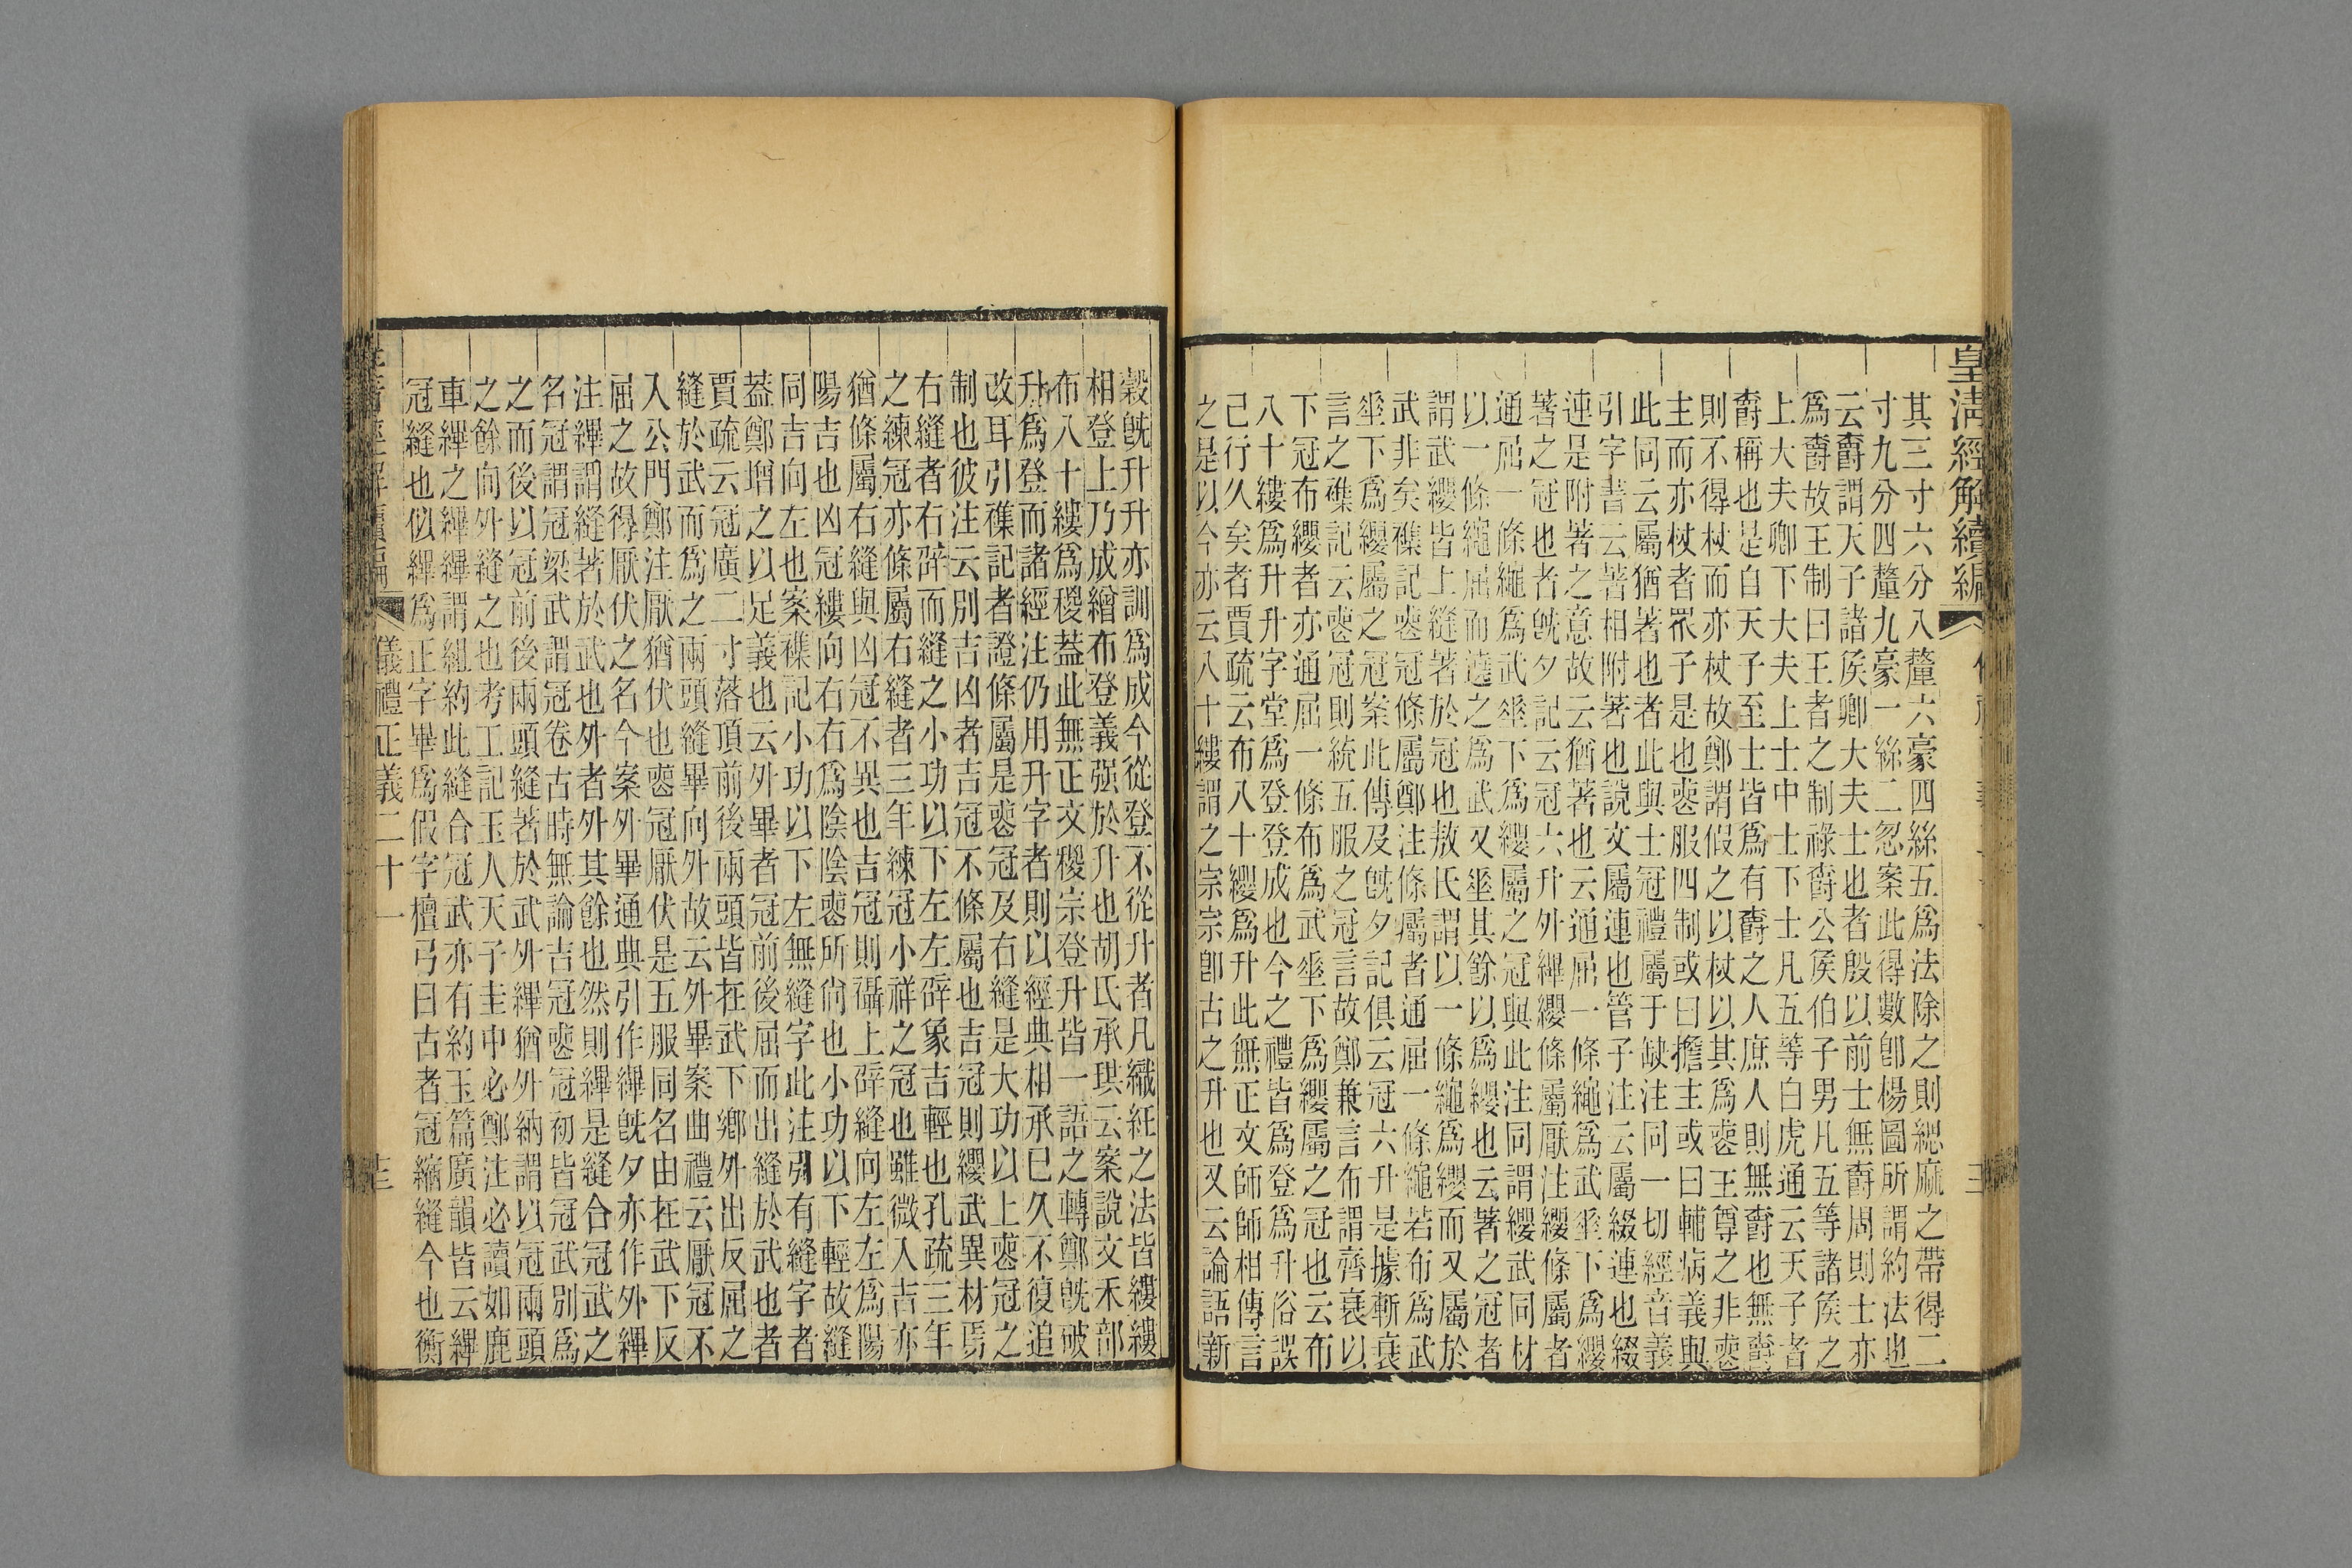 皇淸經解續編
其三寸六分八釐六豪四絲五爲法除之則緦麻之帶得二
寸九分四釐九豪一絲二忽案此得數卽楊圖所謂約法也
云爵謂天子諸矦卿大夫士也者殷以前士無爵周則士亦
爲爵故王制曰王者之制祿爵公矦伯子男凡五等諸矦之
上大夫卿下大夫上士中士下士凡五等白虎通云天子者
爵稱也是自天子至士皆爲有爵之人庶人則無爵也無爵
則不得杖而亦杖故鄭謂假之以杖以其爲喪主尊之非喪
主而亦杖者眾子是也喪服四制或曰擔主或曰輔病義與
此同云屬猶著也者此與士冠禮屬于缺注同一切經音義
引字書云著相附著也說文屬連也管子注云屬綴連也綴
連是附著之意故云猶著也云通屈一條繩爲武垂下爲纓
著之冠也者旣夕記云冠六升外縪纓條屬厭注纓條屬者
通屈一條繩爲武垂下爲纓屬之冠與此注同謂纓武同材
以一條繩屈而遶之爲武又垂其餘以爲纓也云著之冠者
謂武纓皆上縫著於冠也敖氏謂以一條繩爲纓而又屬於
武非矣襍記喪冠條屬鄭注條屬者通屈一條繩若布爲武
垂下爲纓屬之冠案此傳及旣夕記俱云冠六升是據斬衰
言之襍記云喪冠則統五服之冠言故鄭兼言布謂齊衰以
下冠布纓者亦通屈一條布爲武垂下爲纓屬之冠也云布
八十縷爲升升字堂爲登登成也今之禮皆爲登爲升俗誤
已行久矣者賈疏云布八十縷爲升此無正文師師相傳言
之是以今亦云八十縷謂之宗宗卽古之升也又云論語新
穀旣升升亦訓爲成今從登不從升者凡織紝之法皆縷縷
相登上乃成繒布登義强於升也胡氏承珙云案說文禾部
布八十縷爲稯蓋此無正文稯宗登升皆一語之轉鄭旣破
升爲登而諸經注仍用升字者則以經典相承已久不復追
改耳引襍記者證條屬是喪冠及右縫是大功以上喪冠之
制也彼注云別吉凶者吉冠不條屬也吉冠則纓武異材焉
右縫者右辟而縫之小功以下左左辟象吉輕也孔疏三年
之練冠亦條屬右縫者三年練冠小祥之冠也雖微入吉亦
猶條屬右縫與凶冠不異也吉冠則襵上辟縫向左左爲陽
陽吉也凶冠縷向右右爲陰陰喪所尙也小功以下輕故縫
同吉向左也案襍記小功以下左無縫字此注引有縫字者
蓋鄭增之以足義也云外畢者冠前後屈而出縫於武也者
賈疏云冠廣二寸落頂前後兩頭皆在武下鄉外出反屈之
縫於武而爲之兩頭縫畢向外故云外畢案曲禮云厭冠不
入公門鄭注厭猶伏也喪冠厭伏是五服同名由在武下反
屈之故得厭伏之名今案外畢通典引作縪旣夕亦作外縪
注縪謂縫著於武也外者外其餘也然則縪是縫合冠武之
名冠謂冠梁武謂冠卷古時無論吉冠喪冠初皆冠武別爲
之而後以冠前後兩頭縫著於武外縪猶外納謂以冠兩頭
之餘向外縫之也考工記玉人天子圭中必鄭注必讀如鹿
車縪之縪縪謂組約此縫合冠武亦有約玉篇廣韻皆云縪
冠縫也似縪爲正字畢爲假字檀弓曰古者冠縮縫今也衡
儀禮正義二十一